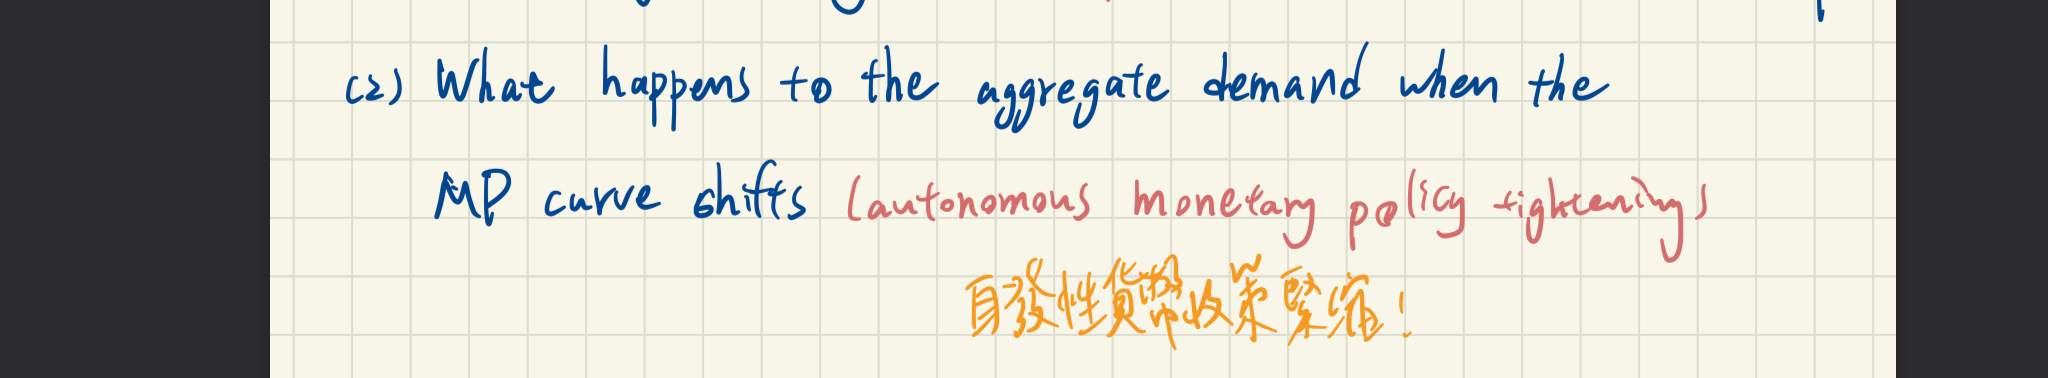 (2) What happens to the aggregate demand when the
MP curve shifts (autonomous monetary policy tightening)
自發性貨幣政策緊縮!